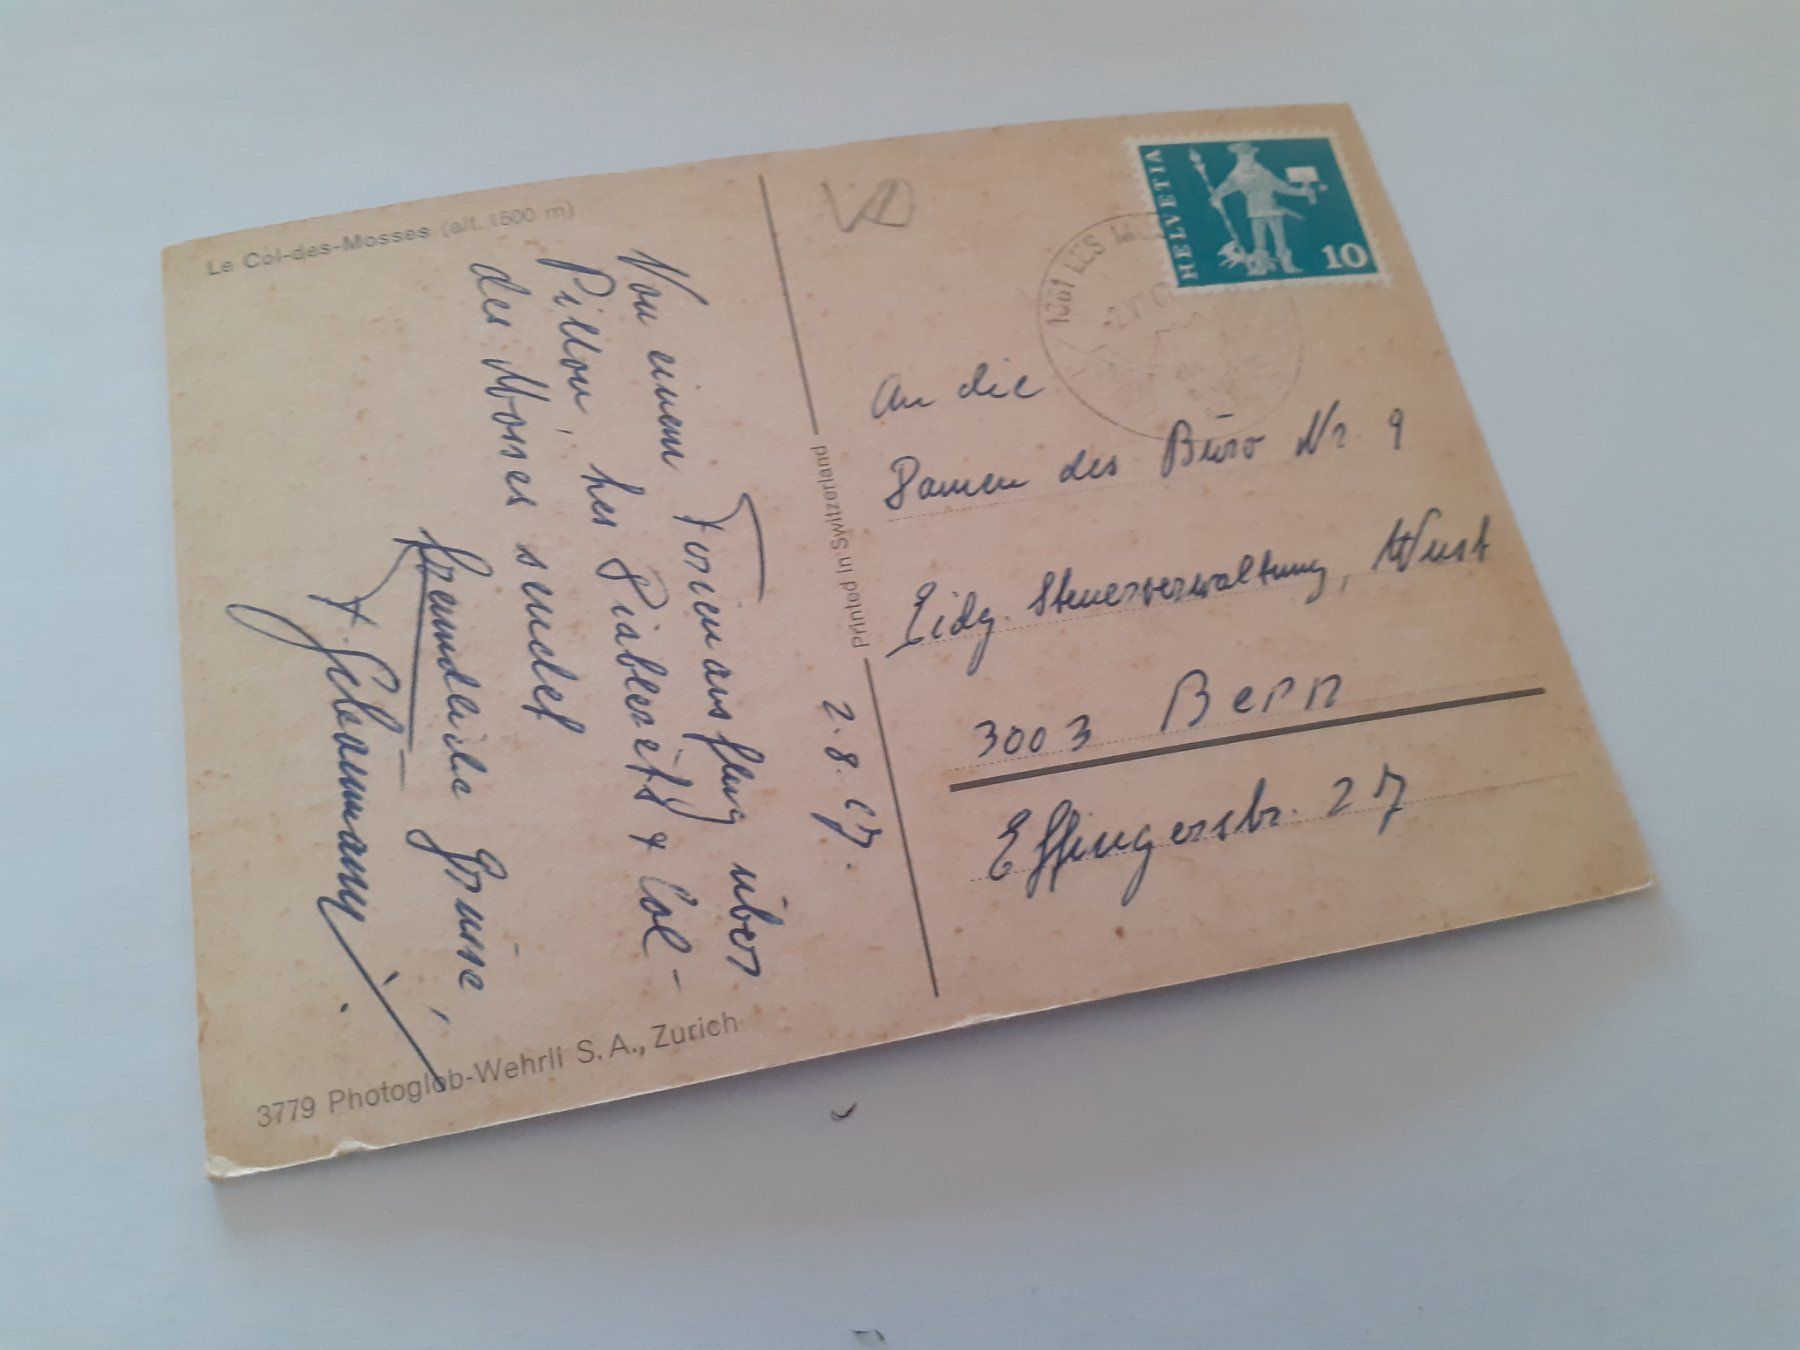 Le Col-des-Mosses (alt. 1500 m)
2. 8. 67.
Von einem Ferienausflug über
Pillon, les Diablerets & Col-
des Mosses sendet
freundliche Grüsse,
3779 Photoglob-Wehrli S.A., Zürich
Printed in Switzerland
VD
HELVETIA
10
1861 LES
An die
Damen des Büro Nr. 9
Eidg. Steuerverwaltung, Wust
3003 Bern
Effingerstr. 27